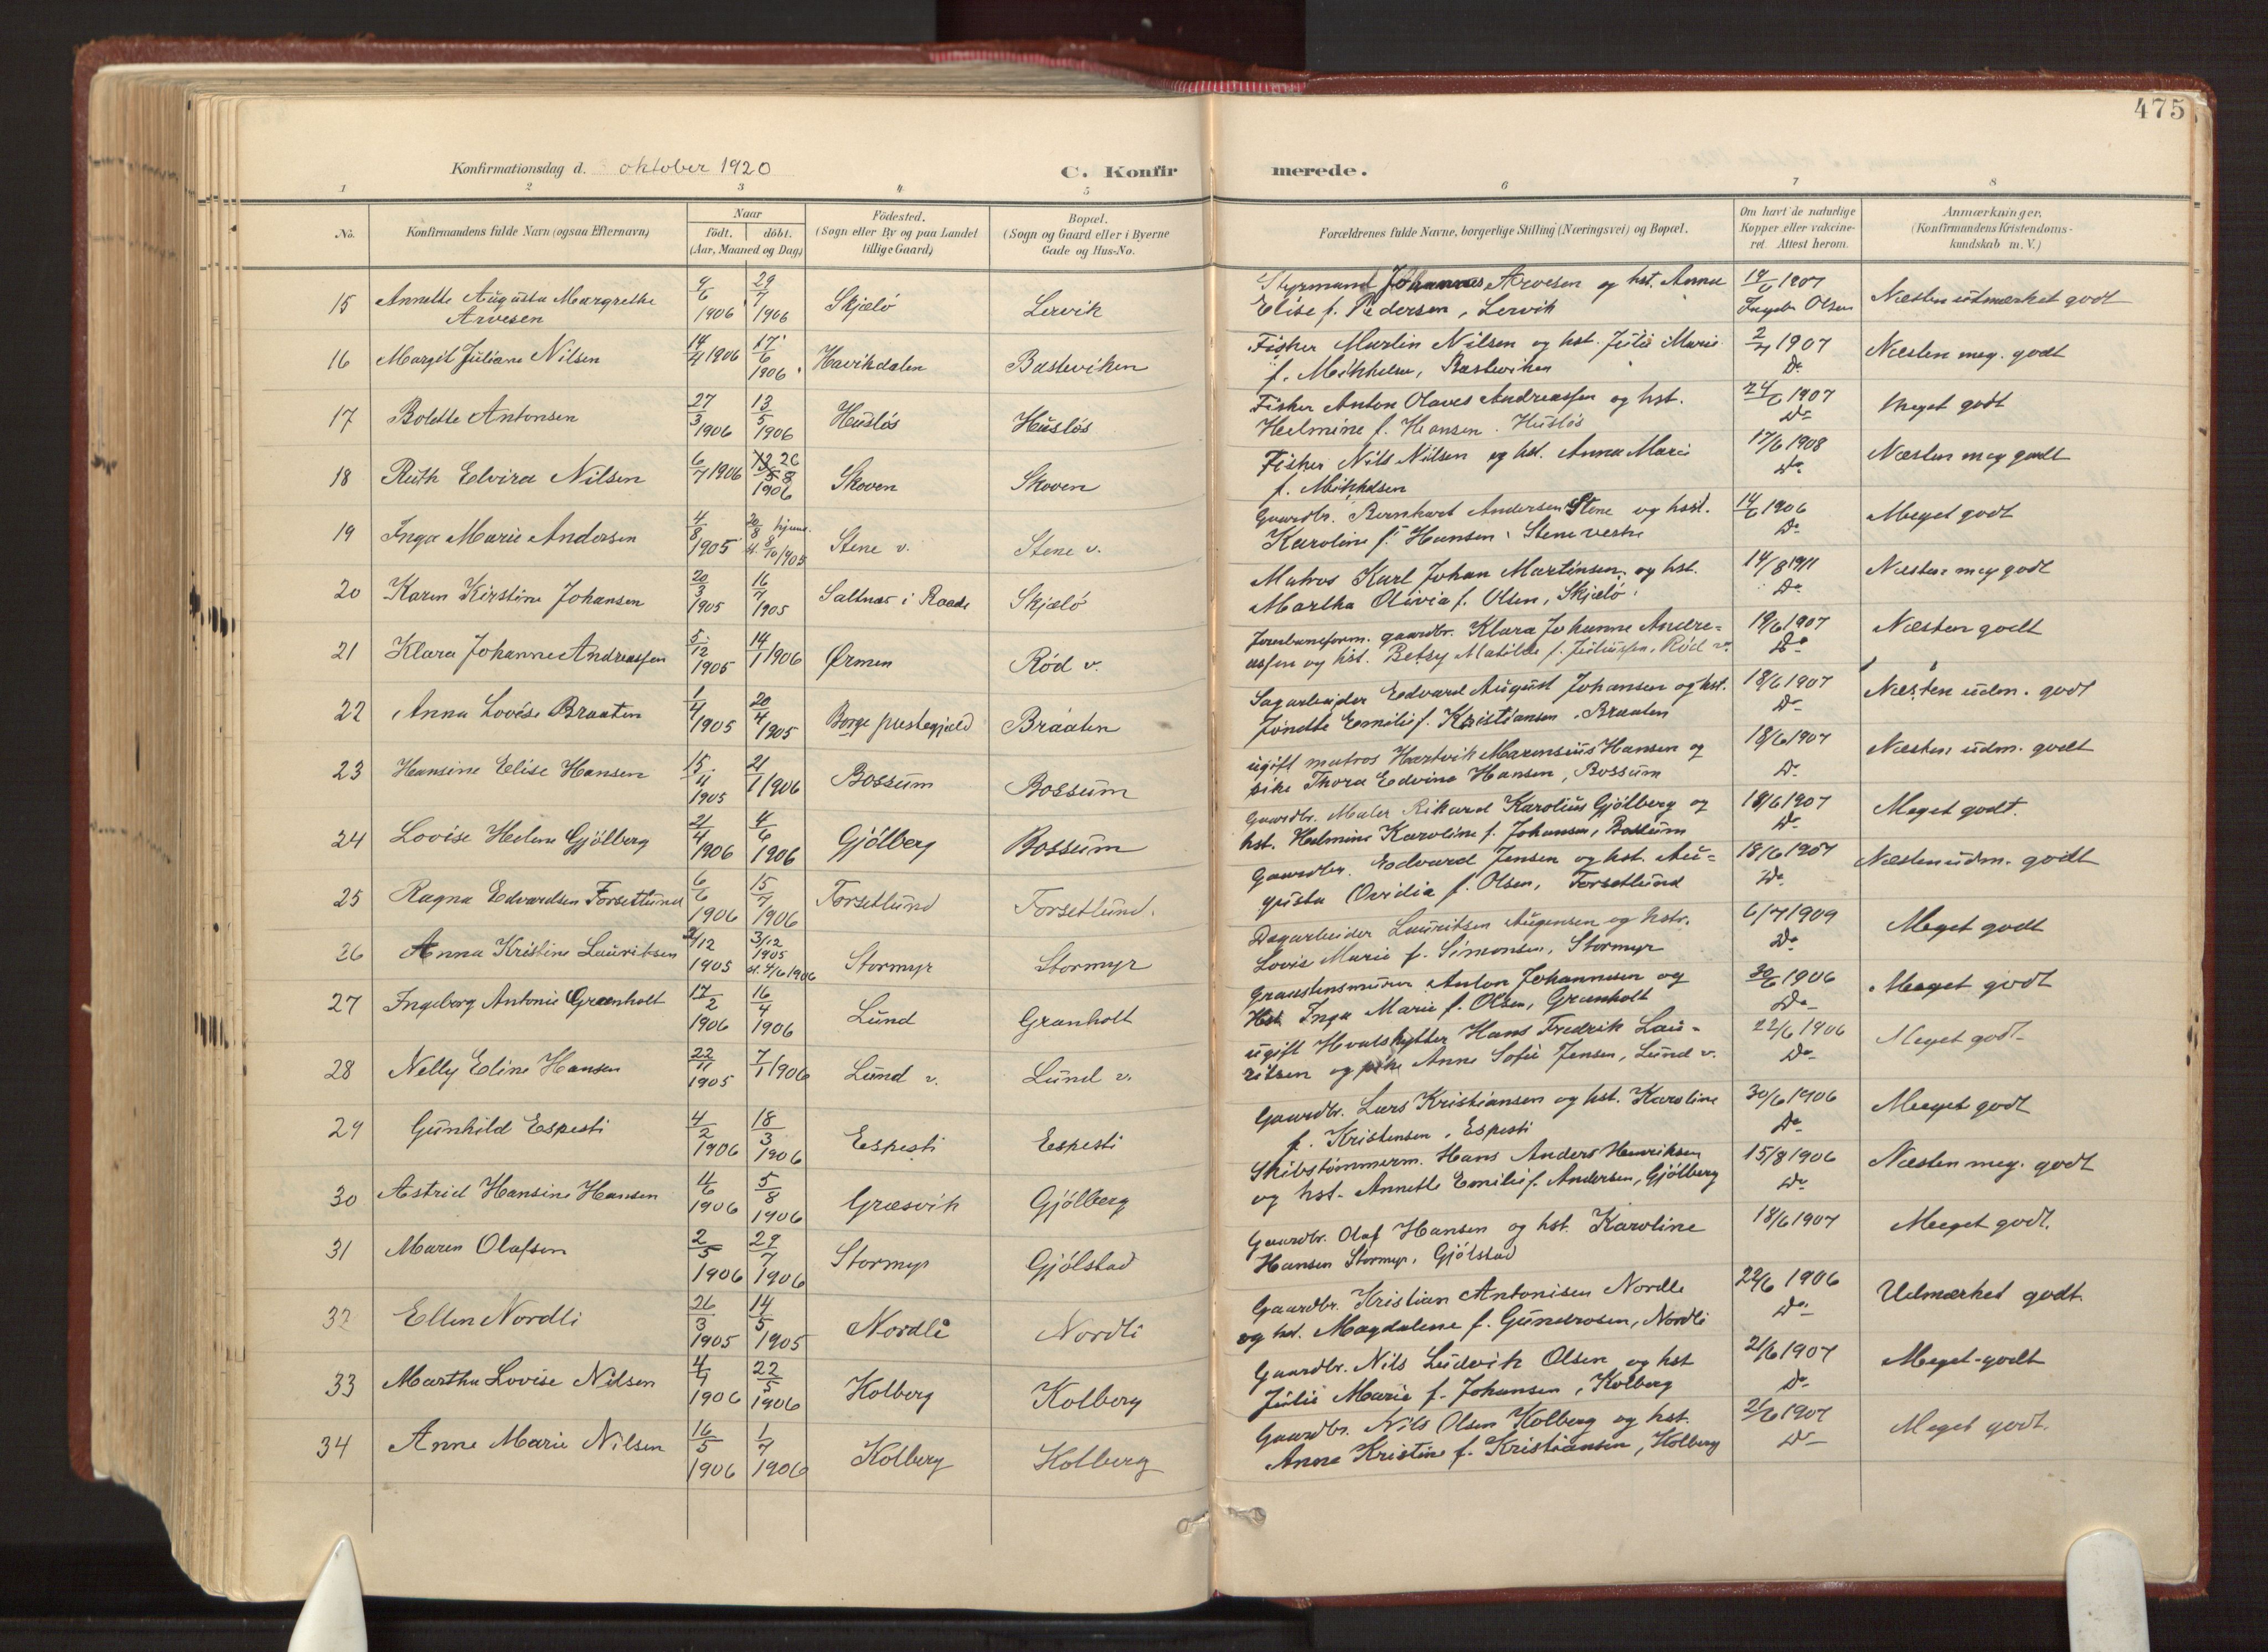 475
Konfirmationsdag d. oktober 1920
C. Konfirmerede.
1 2 3 4 5 6 7 8
No.
Konfirmandens fulde Navn (ogsaa Efternavn)
Naar
født. døbt.
(Aar, Maaned og Dag)
Födested.
(Sogn eller By og paa Landet
tillige Gaard)
Bopæl.
(Sogn og Gaard eller i Byerne
Gade og Hus-No.
Forældrenes fulde Navne, borgerlige Stilling (Næringsvei) og Bopæl.
Om havt de naturlige
Kopper eller vakcine-
ret. Attest herom.
Anmærkninger.
(Konfirmandens Kristendoms-
kundskab m. V.)
15 Annette Augusta Margrethe
Arvesen
6 1906 29/7 1906 Skjælö Lervik
Styrmand Johannes Arvesen og hst. Anna
Elise f. Pedersen, Lervik
1907 Olsen
Næsten utmærket godt
16 Margit Juliane Nilsen 14/4 1906 17/6 1906 Havikdalen Basteviken
Fisker Martin Nilsen og hst. Julie Marie
f. Mikkelsen, Basteviken
1907 Do
Næsten meg. godt
17 Bolette Antonsen 27/3 1906 13/5 1906 Husløs Husløs
Fisker Anton Olaves Andreassen og hst.
Helmine f. Hansen. Husløs
24/6 1907 Do
Meget godt
18 Ruth Elvira Nilsen 6/7 1906 26/8 1906 Skoven Skoven
Fisker Nils Nilsen og hst. Anna Marie
f. Mikkelsen
17/6 1908 Do
Næsten meg godt
19 Inga Marie Andersen 4/8 1905 20/8 hjemme. st. 8/10 1905 Stene v. Stene v.
Gaardbr. Bernhart Andersen Stene og hst.
Karoline f. Hansen. Stene vestre
14/6 1906 Do
Meget godt
20 Karen Kirstine Johansen 20/3 1905 16/7 1905 Saltnæs i Raade Skjælö
Matros Karl Johan Martinsen, og hst.
Martha Olivia f. Olsen, Skjælö.
14/8 1911 Do
Næsten meg godt
21 Klara Johanne Andreassen 5/12 1905 14/1 1906 Ørmen Rød v.
gaardbr. Klara Johanne Andre-
assen og hst. Betsy Matilde f. Juliussen, Rød v.
19/6 1907 Do
Næsten godt
22 Anna Lovise Braaten 1/4 1905 20/4 1905 Borge prestegjæld Braaten
Sagarbejder Edvard August Johansen og hst.
Emilie f. Kristiansen. Braaten
18/6 1907 Do
Næsten udm. godt
23 Hansine Elise Hansen 15/11 1905 21/1 1906 Bossum Bossum
ugift matros Hartvik Marensius Hansen og
pike Thora Edvine Hansen, Bossum
18/6 1907 Do
Næsten udm. godt
24 Lovise Helene Gjölberg 21/4 1906 4/6 1906 Gjölberg Bossum
Gaardbr. Maler Rikard Karolius Gjölberg og
hst. Helmine Karoline f. Johansen, Bossum
18/6 1907 Do
Meget godt.
25 Ragna Edvardsen Forsetlund 6/6 1906 15/7 1906 Forsetlund Forsetlund.
Gaardbr. Edvard Jensen og hst. Au-
gusta Ovidia f. Olsen, Forsetlund
18/6 1907 Do
Næsten udm. godt
26 Anna Kristine Lauritsen 2/12 1905 3/12 1905 st. 4/6 1906 Stormyr Stormyr
Dagarbeider Lauritsen Augensen og hstr.
Lovise Marie f. Simonsen, Stormyr
6/7 1909 Do
Meget godt
27 Ingeborg Antonie Grønholt 17/2 1906 16/4 1906 Lund Granholt
Graastensmurer Anton Johannesen og
Hst Inga Marie f. Olsen, Grønholt
30/6 1906 Do
Meget godt
28 Nelly Eline Hansen 22/11 1905 7/1 1906 Lund v. Lund v.
ugift Hvalskytter Hans Fredrik Lau-
ritsen og pike Anne Sofie Jensen, Lund v.
22/6 1906 Do
Meget godt
29 Gunhild Espesti 4/2 1906 18/3 1906 Espesti Espesti
Gaardbr. Lars Kristiansen og hst. Karoline
f. Kristensen, Espesti
30/6 1906 Do
Meeget godt
30 Astrid Hansine Hansen 4/6 1906 5/8 1906 Græsvik Gjölberg
Skibstömmerm. Hans Anders Henriksen
og hst. Annette Emilie f. Andersen, Gjölberg
15/8 1906 Do
Næsten meg. godt
31 Maren Olafsen 2/5 1906 29/7 1906 Stormyr Gjölstad
Gaardbr. Olaf Hansen og hst. Karoline
Hansen Stormyr, Gjölstad
18/6 1907
Meeget godt.
32 Ellen Nordli 26/3 1905 14/5 1905 Nordli Nordli
Gaardbr. Kristian Antonisen Nordle
og hst. Magdalene f. Gundrosen, Nordli
22/6 1906 Do
Udmærket godt
33 Martha Lovise Nilsen 4/1 1906 22/5 1906 Kolberg Kolberg
Gaardbr. Nils Ludvik Olsen og hst
Julie Marie f. Johansen, Kolberg
21/6 1907 Do
Meget godt
34 Anne Marie Nilsen 16/5 1906 1/7 1906 Kolberg Kolberg
Gaardbr. Nils Olsen Kolberg og hst.
Anne Kristine f. Kristiansen, Kolberg
1907 Do
Meget godt.